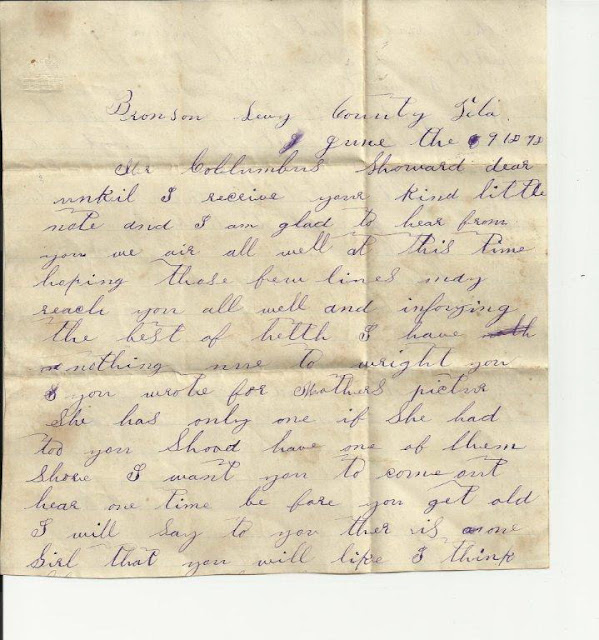 Bronson Levy County Fla.
June the 9 18
Mr Collumbus Showard dear
unkil I receive your kind little
note and I am glad to hear from
you we air all well at this time
hoping those few lines may
reach you all well and injoying
the best of helth I have
nothing nue to wright you
you wrote for Mothers pictur
She has only one if She had
too you Shood have one of them
Shore I want you to come out
hear one time be fore you get old
I will Say to you ther is one
Girl that you will like I think